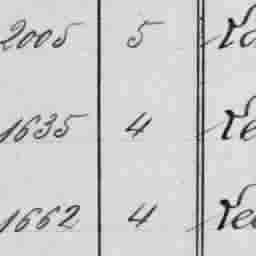 2005 5
1635 4
1662 4